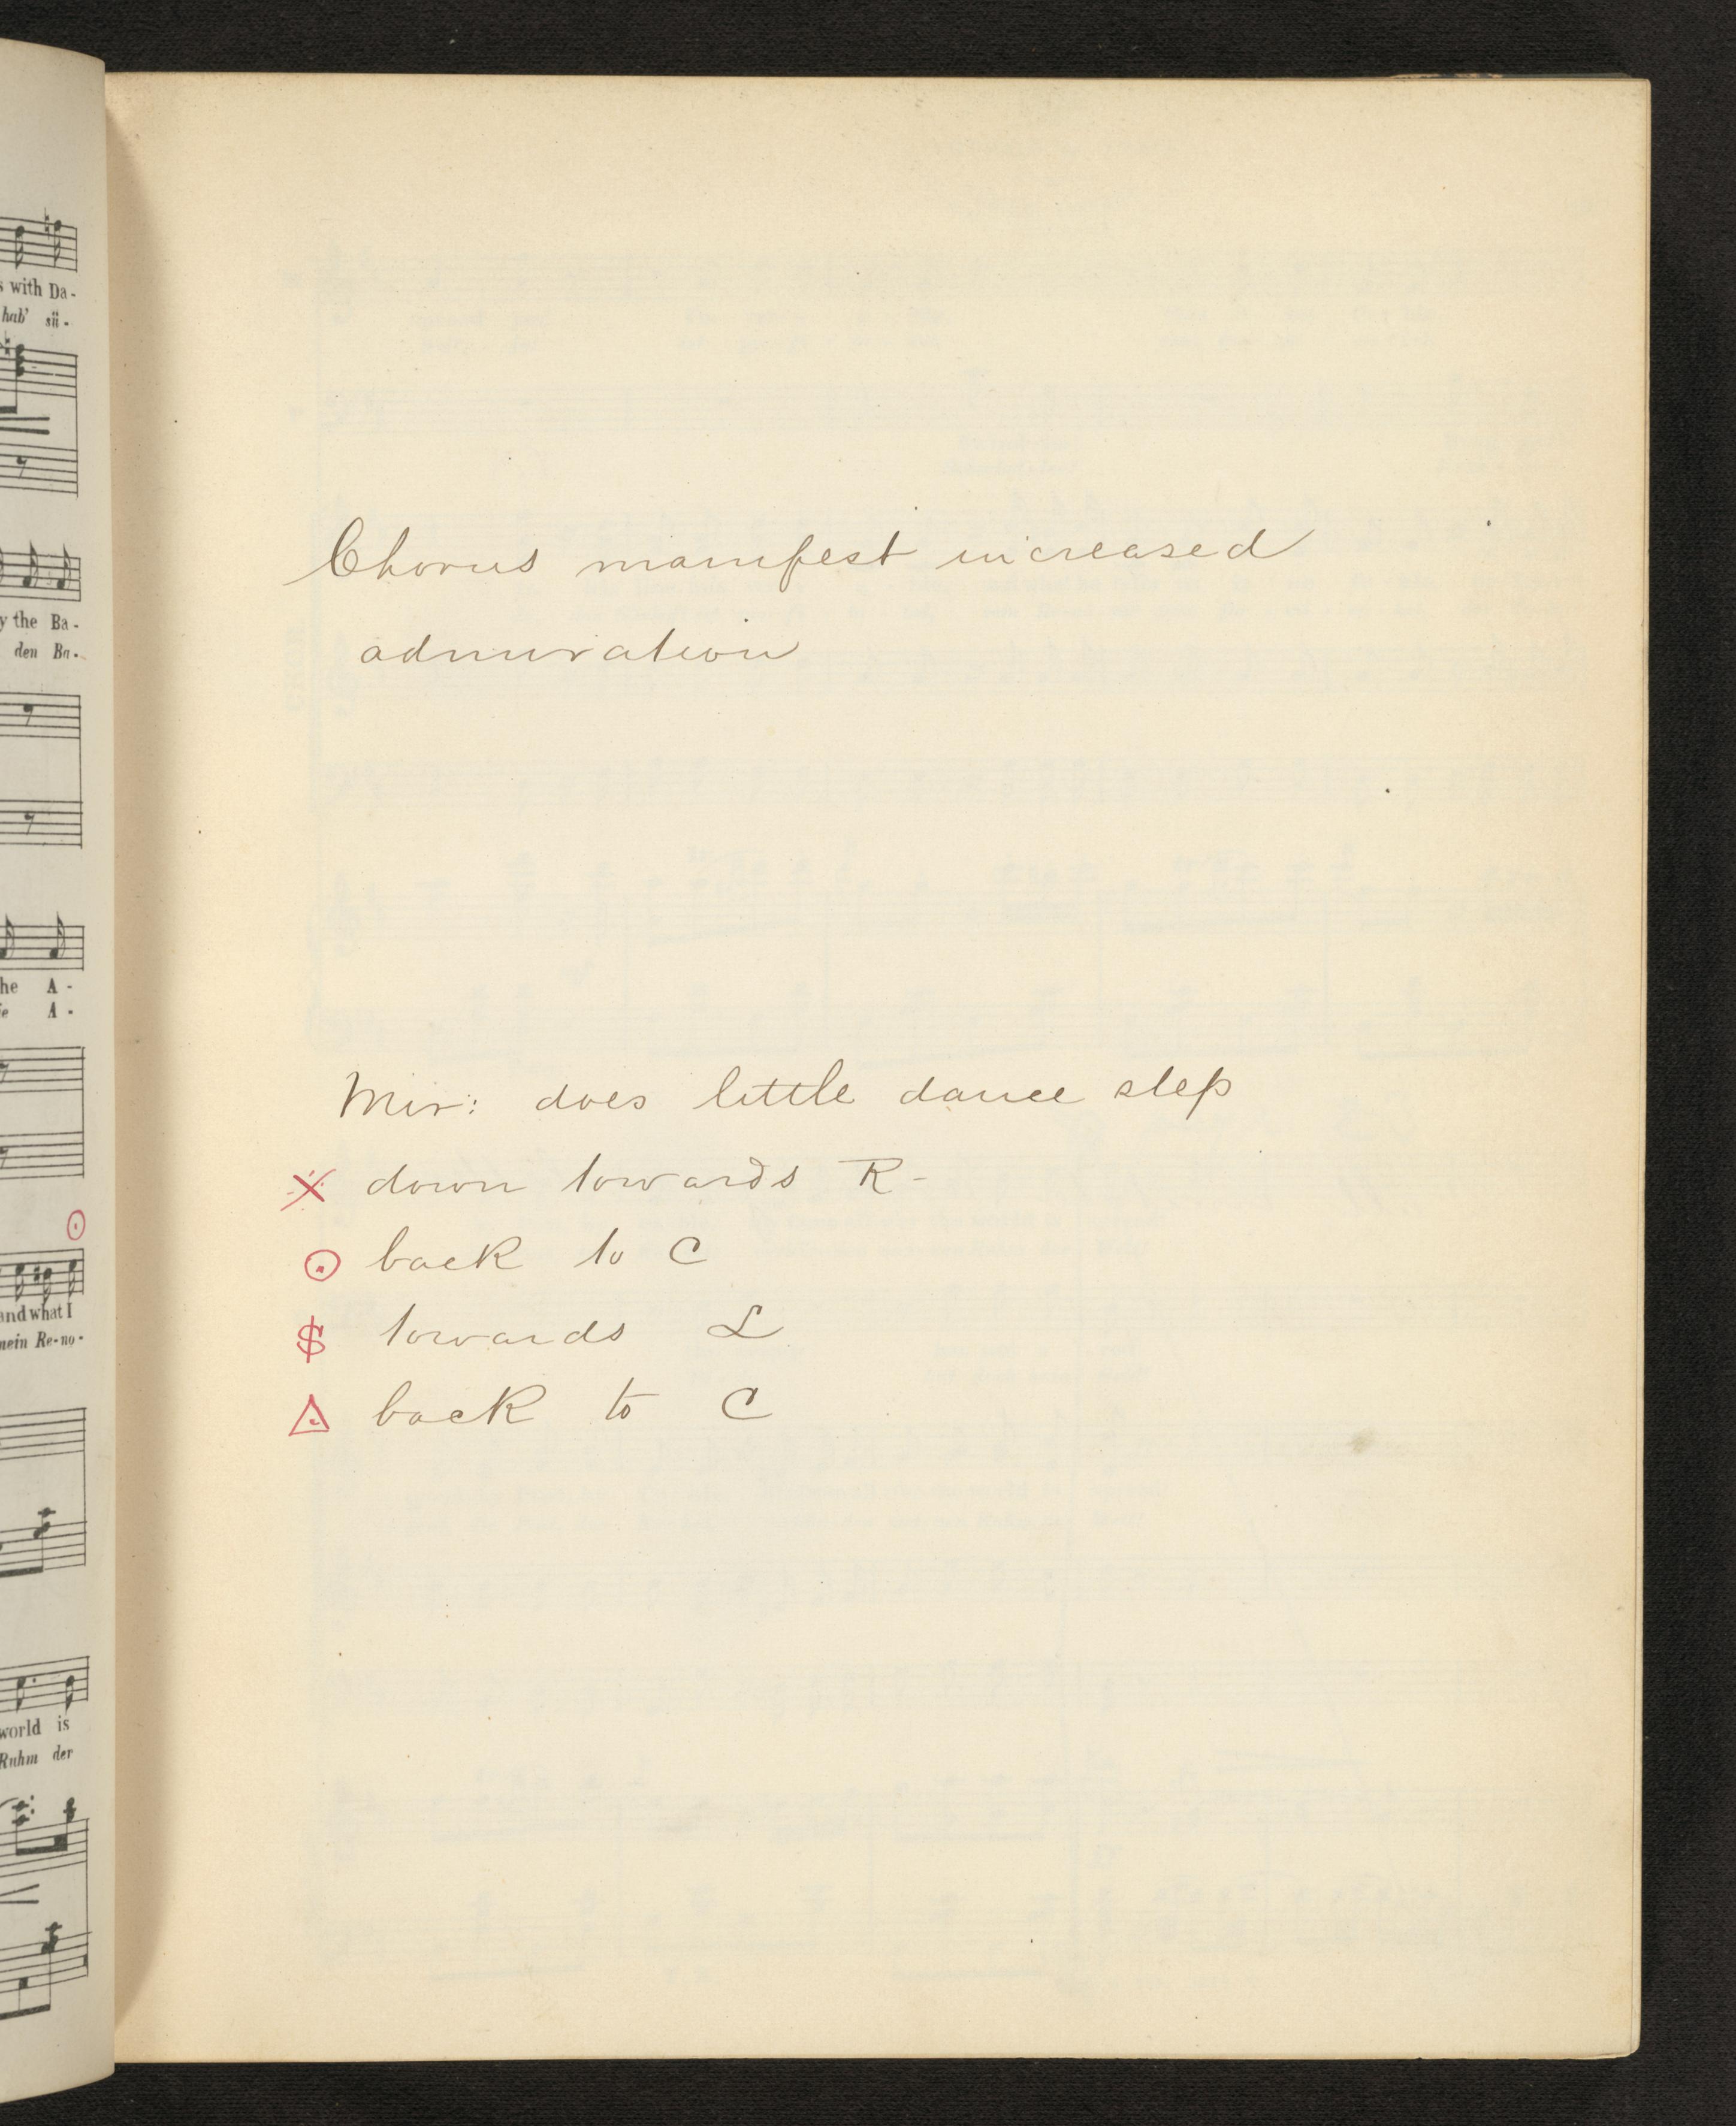 s with Da-
hab' sü-
y the Ba-
den Ba-
he A-
ie A-
and what I
mein Re-no-
world is
Ruhm der
Chorus manifest increased
admiration
Mir: does little dance step
down towards R-
back to C
$ towards L
back to C